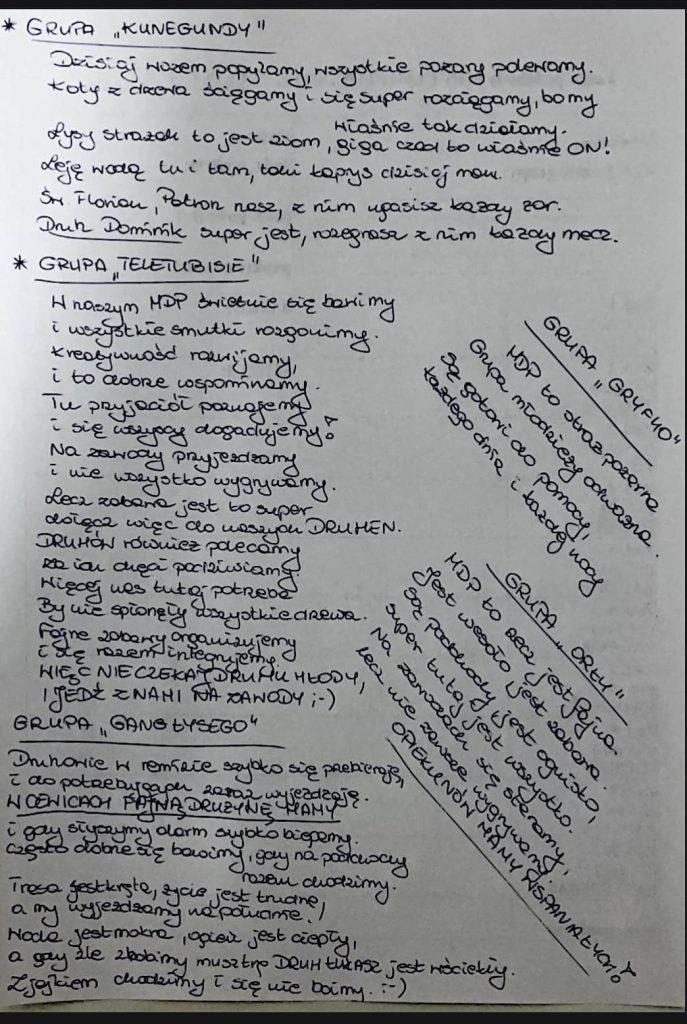 * GRUPA „KUNEGUNDY"
Dzisiaj wozem popylamy, wszystkie pożary polewamy.
Koty z drzewa ściągamy i się super rozciągamy, bo my
właśnie tak działamy.
Łysy strażak to jest ziom, giga czad to właśnie ON!
Leję wodą tu i tam, taki kaprys dzisiaj mam.
Św. Florian, Patron nasz, z nim ugasisz każdy żar.
Druh Dominik super jest, rozegrasz z nim każdy mecz.
* GRUPA „TELETUBISIE"
W naszym MDP świetnie się bawimy
i wszystkie smutki rozgonimy.
Kreatywność rozwijamy,
i to dobrze wspominamy.
Tu przyjaciół poznajemy
i się wszyscy dogadujemy!
Na zawody przyjeżdżamy
i nie wszystko wygrywamy.
Lecz zabawa jest to super
dołącz więc do naszych DRUHEN.
DRUHÓW również polecamy
za ich chęci podziwiamy.
Więcej nas tutaj potrzeba
By nie spłonęły wszystkie drzewa.
Fajne zabawy organizujemy
i się razem integrujemy.
WIĘC NIE CZEKAJ DRUHU MŁODY,
I JEDŹ Z NAMI NA ZAWODY ;-)
GRUPA „GANG ŁYSEGO"
Druhowie w remizie szybko się przebierają,
i do potrzebujących zaraz wyjeżdżają.
W CEWICACH FAJNĄ DRUŻYNĘ MAMY
i gdy słyszymy alarm szybko biegamy.
Często dobrze się bawimy, gdy na podchody
razem chodzimy.
Trasa jest kręta, życie jest trudne,
a my wyjeżdżamy na polewanie!
Woda jest mokra, ogień jest ciepły,
a gdy źle zrobimy musztrę DRUH ŁUKASZ jest wściekły.
Z jajkiem chodzimy i się nie boimy. :-)
GRUPA „GRYFNO"
MDP to straż pożarna
Grupa młodzieży odważna.
Są gotowi do pomocy,
każdego dnia i każdej nocy
GRUPA „ORŁY"
MDP to rzecz jest fajna.
Jest wesoło i jest zabawa.
Są podchody, jest ognisko,
super tutaj jest wszystko.
Na zawodach się staramy,
lecz nie zawsze wygrywamy.
OPIEKUNÓW MAMY WSPANIAŁYCH!